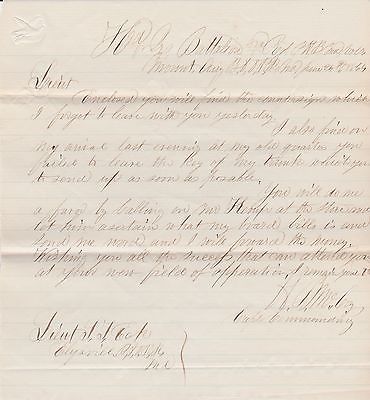 Hd Qrs Battalion
Mount Airy
Lieut
Enclosed you will find the countersign which
I forgot to leave with you yesterday.
I also find on
my arrival last evening at my old quarters you
failed to leave the key of my trunk which you
to send up as soon as posable.
You will do me
a favor by calling on Mr Kemp at the Store and
let him ascertain what my board bills is and
send me word and I will foward the money.
Wishing you all the success that can attend you
at your new field of opperation, I remain yours
Capt Commanding
Lieut